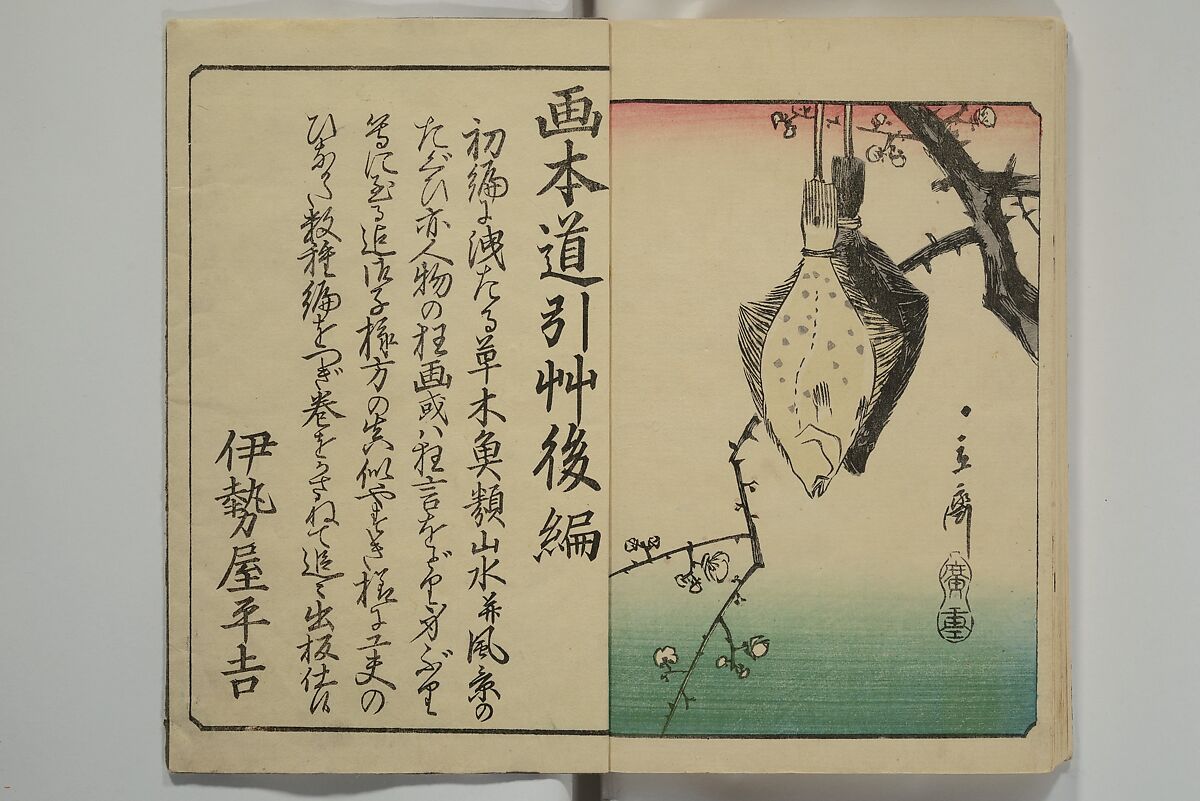 一立齋
廣重
画本道引艸後編
初編に洩たる草木魚類山水并風景の
たぐひ亦人物の狂画或ハ狂言をどり身ぶり
等に至る迄御子様方の真似やすき様に工夫の
ひながた数種編をつぎ巻をかさねて追々出板仕候
伊勢屋平吉